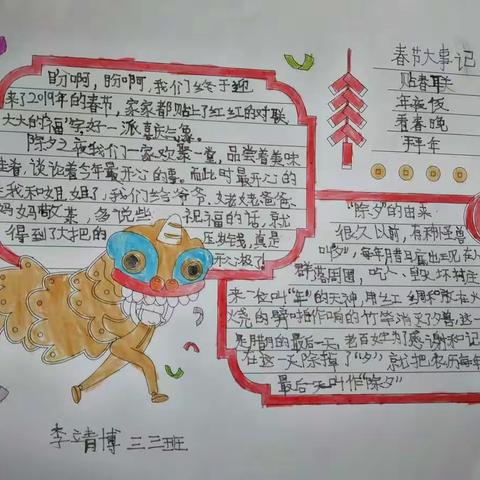 盼啊，盼啊，我们终于迎
来了2019年的春节，家家都贴上了红红的对联
大大的"福"字好一派喜庆气象。
除夕夜我们一家欢聚一堂，品尝着美味
佳肴，谈论着今年最开心的事。而此时最开心的
是我和姐姐了，我们给爷爷、姥姥爸爸、
妈妈敬茶，多说些祝福的话，就
得到了大把的压岁钱，真是
开心极了。
春节大事记
贴春联
年夜饭
看春晚
拜年
"除夕"的由来
很久以前，有种怪兽
叫"夕"，每年腊月底出现在人
群范围，吃人、毁坏村庄
来一位叫"年"的天神，用红绸和放在火
烧的噼啪作响的竹竿消灭了夕兽，这一
是腊月的最后一天，老百姓为了感谢和记
在这一天除掉了"夕"，就把农历每年
最后一天叫作"除夕"
李靖博 三三班